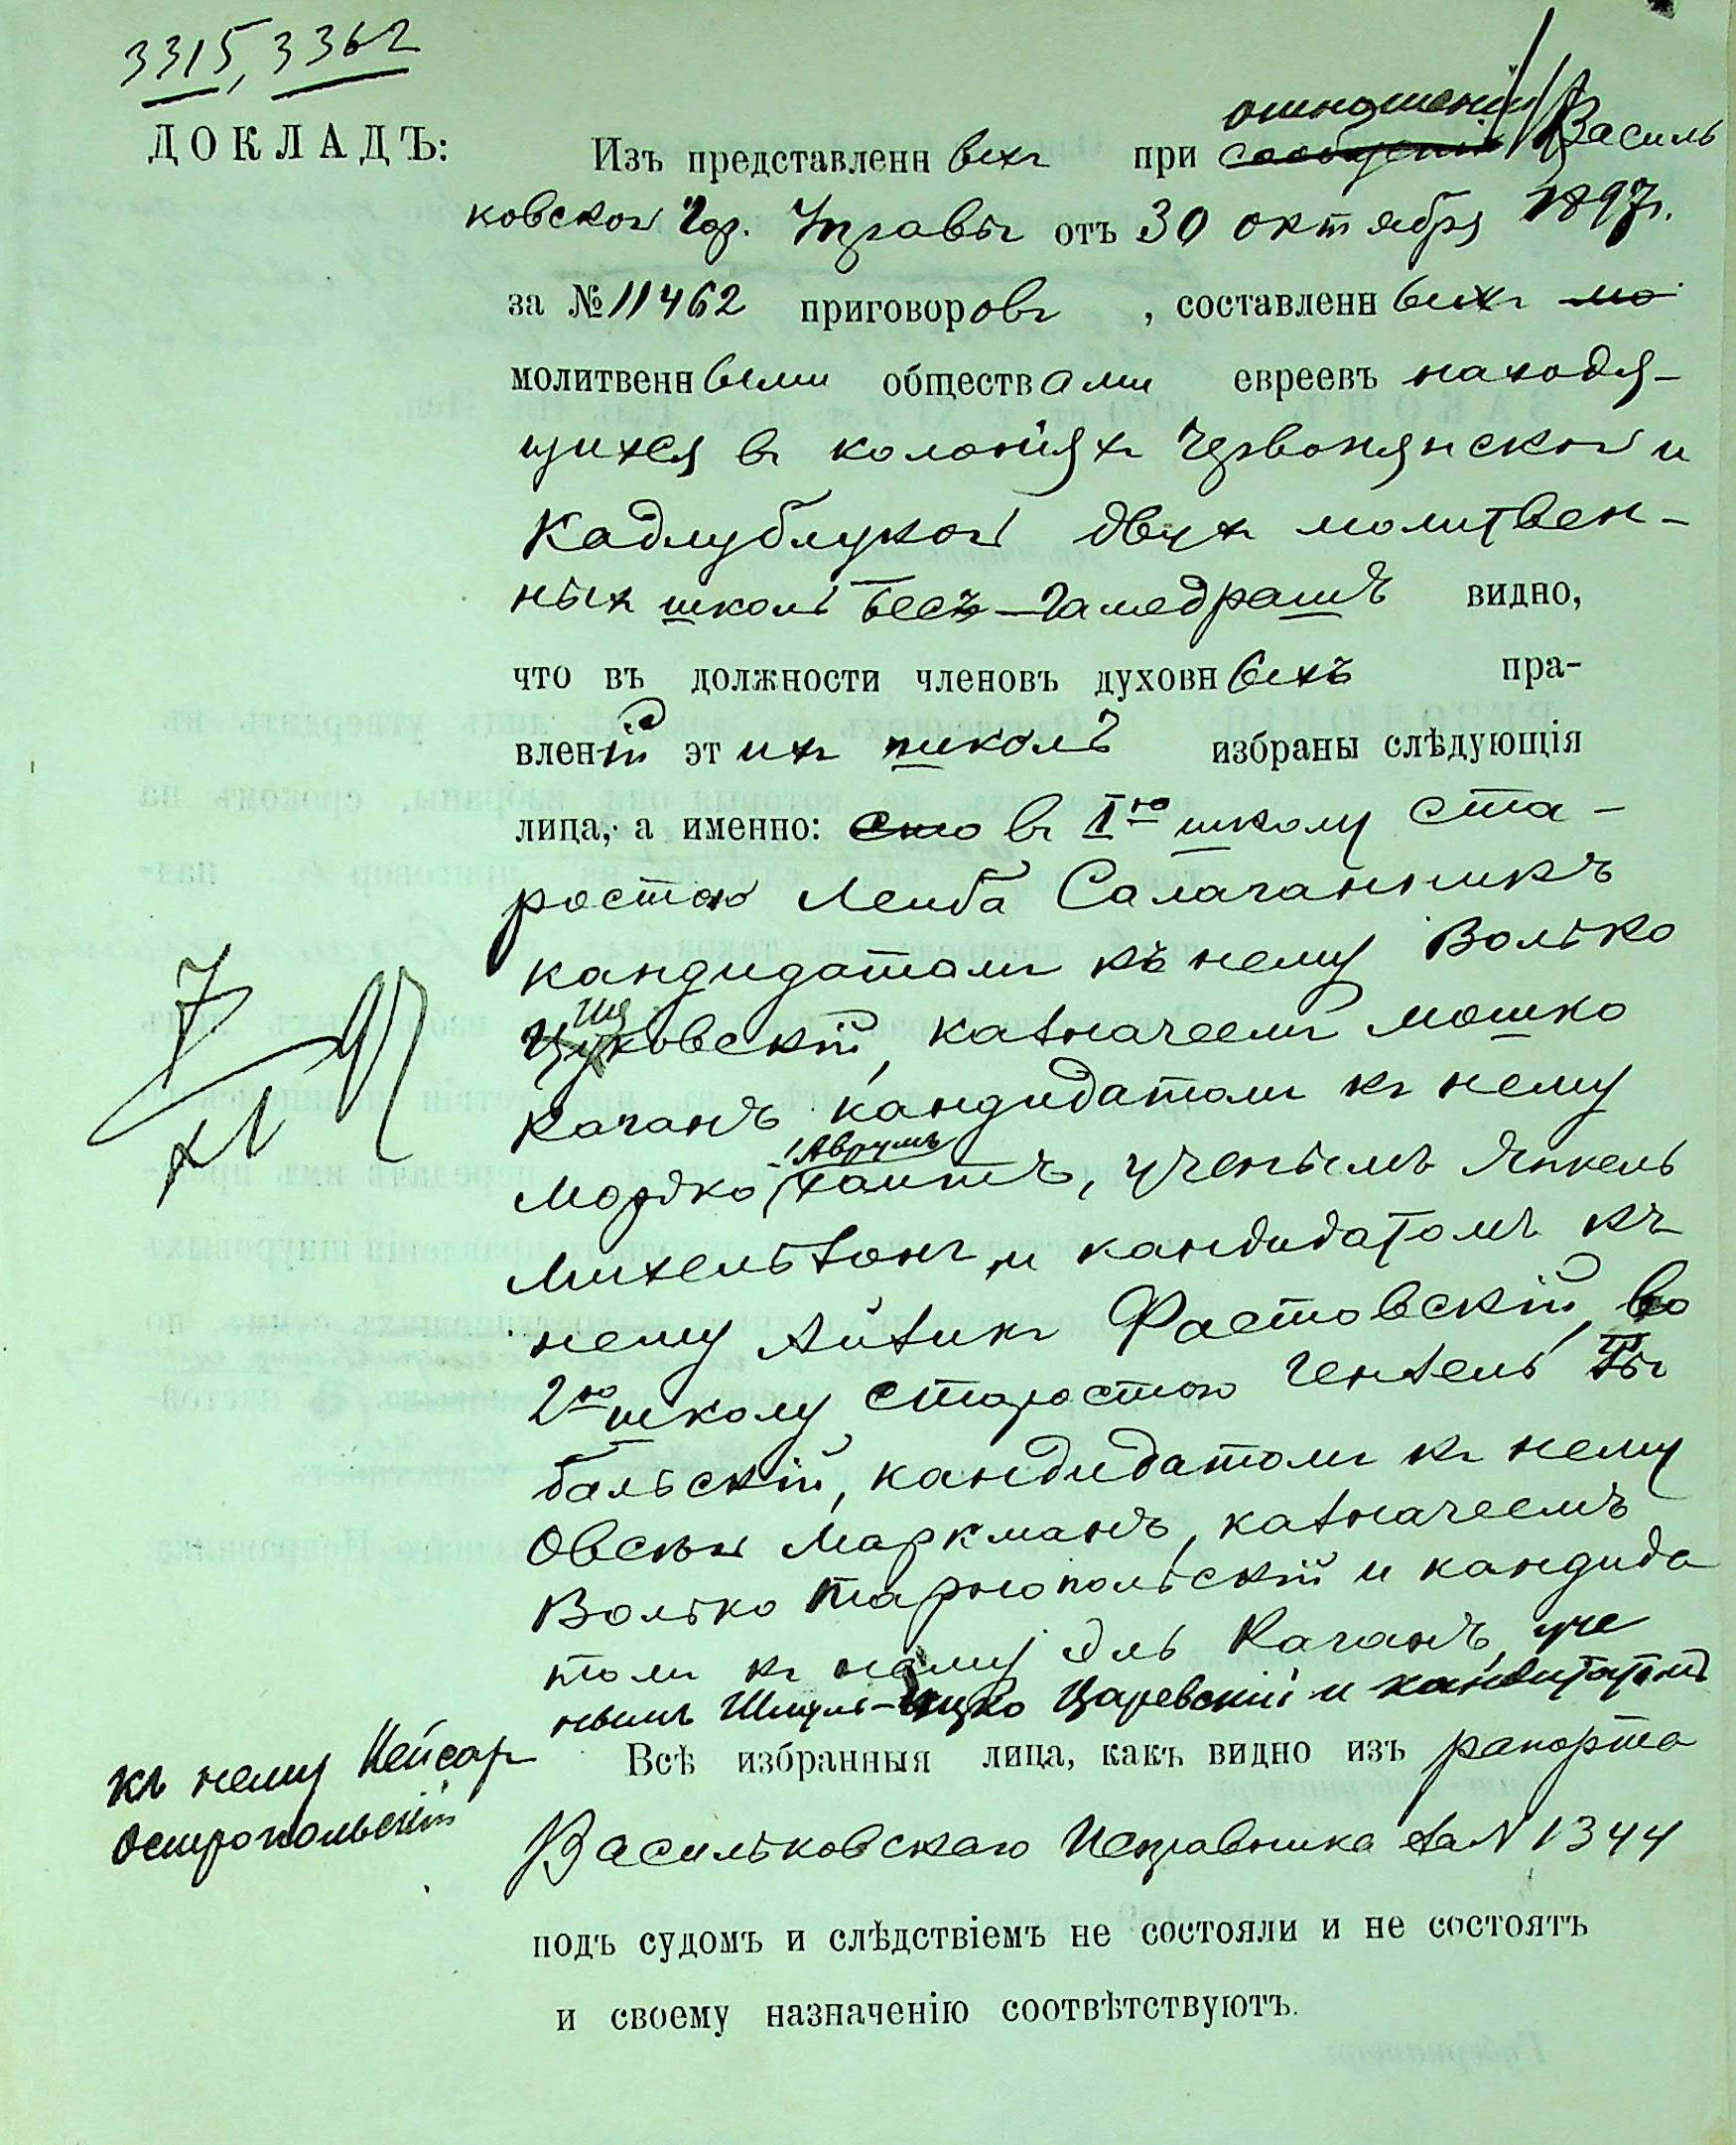 3315, 3362
ДОКЛАДЪ:
отношеніи
Изъ представленныхъ при сообщеніи Василь
ковской Гор. Управы отъ 30 октября 1897 г.
за № 11462 приговоровъ, составленныхъ мо
молитвенными обществами евреевъ находя-
щихся въ колоніяхъ Червонянской и
Кадлублицкой двухъ молитвен-
ныхъ школъ Бесъ-Гамедрашъ видно,
что въ должности членовъ духовныхъ пра-
вленій этихъ школъ избраны слѣдующія
лица, а именно: въ I ю школу ста-
ростою Лейба Салаганникъ
кандидатомъ къ нему Волько
ковскій, казначеемъ Мошко
Каганъ кандидатомъ къ нему
Аврумъ
Мордко Хаитъ, ученымъ Янкель
Михельзонъ и кандидатомъ къ
нему Айзикъ Фастовскій, во
2 ю школу старостою Гензель
бальскій, кандидатомъ къ нему
Овсей Маркманъ, казначеемъ
Волько Тарнопольскій и кандида
томъ къ нему Эль Каганъ, уче
нымъ Шмуль-Ицко Царевскій и кандидатомъ
къ нему Кейсар
Остропольскій
7/XI 97
Всѣ избранныя лица, какъ видно изъ рапорта
Васильковскаго Исправника за № 1344
подъ судомъ и слѣдствіемъ не состояли и не состоятъ
и своему назначенію соотвѣтствуютъ.